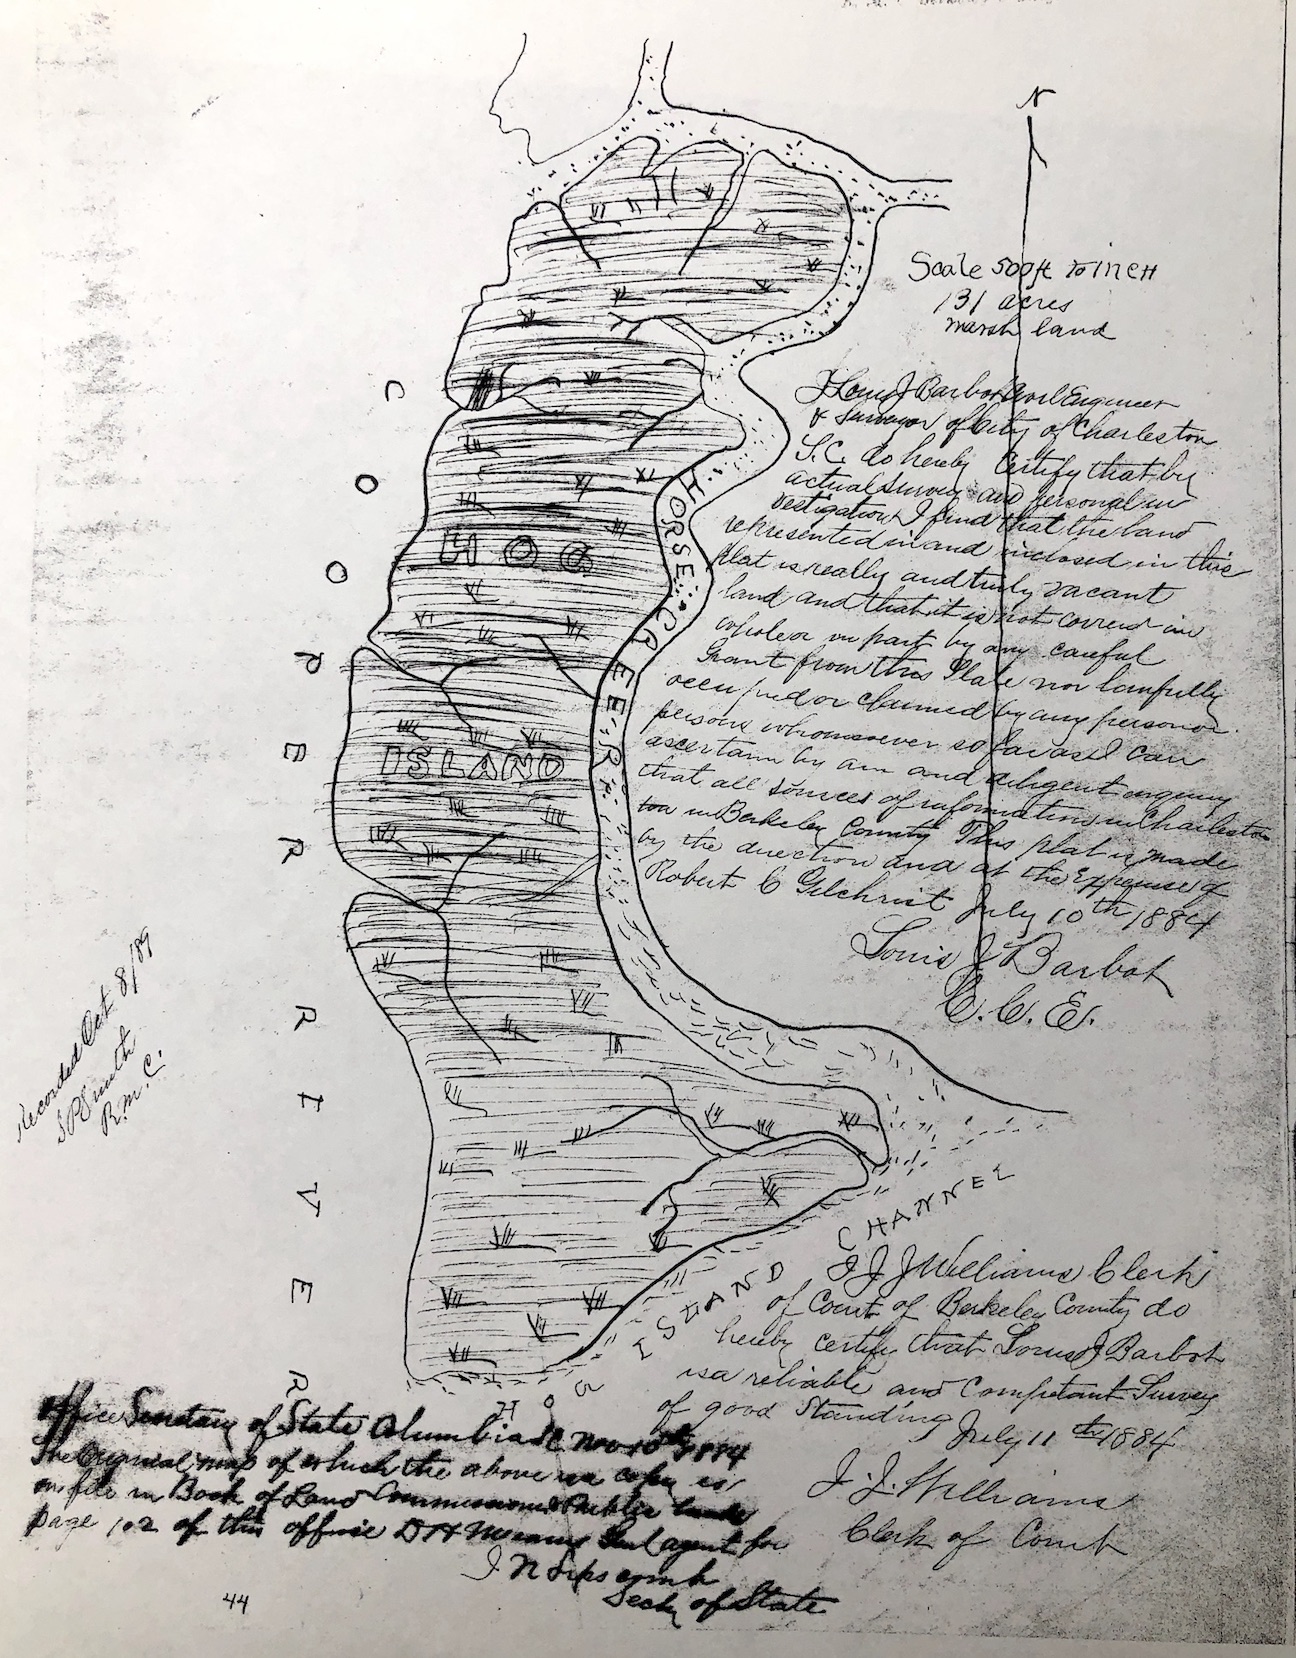 N
Scale 500ft to inch
131 acres
marsh land
I Louis J Barbot Civil Engineer
& Surveyor of City of Charleston
S.C. do hereby Certify that by
actual survey and personal in
vestigation I find that the land
represented in and inclosed in this
plat is really and truly vacant
land and that it is not covered in
whole or in part by any careful
Grant from this State nor lawfully
occupied or claimed by any person or
persons whomsoever so far as I can
ascertain by am and diligent enquiry
that all sources of information in Charleston
in Berkeley County This plat is made
by the direction and at the Expense of
Robert C Gilchrist July 10th 1884
Louis J Barbot
C.C.E.
COOPER RIVER
HOG
ISLAND
HORSE CREEK
HOG ISLAND CHANNEL
Recorded Oct 8/89
Smith
R.M.C.
I J J Williams Clerk
of Court of Berkeley County do
hereby certify that Louis J Barbot
is a reliable and Competant Survey
of good Standing
July 11th 1884
J. J. Williams
Clerk of Court
Office Secretary of State Columbia SC Nov 10th 1884
The Original map of which the above is a copy is
on file in Book of Land Commissioners Public lands
page 102 of this office D H Means Genl agent for
J N Lipscomb
Secty of State
44